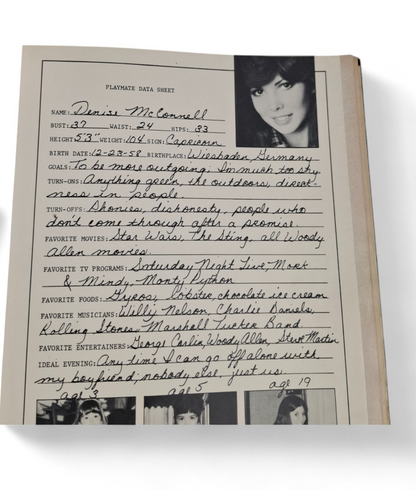 PLAYMATE DATA SHEET
NAME: Denise McConnell
BUST: 37 WAIST: 24 HIPS: 33
HEIGHT: 5'3" WEIGHT: 104 SIGN: Capricorn
BIRTH DATE: 12-23-58 BIRTHPLACE: Wiesbaden, Germany
GOALS: To be more outgoing; I'm much too shy.
TURN-ONS: Anything green, the outdoors, direct-
ness in people.
TURN-OFFS: Phonies, dishonesty, people who
don't come through after a promise.
FAVORITE MOVIES: Star Wars, The Sting, all Woody
Allen movies.
FAVORITE TV PROGRAMS: Saturday Night Live, Mork
& Mindy, Monty Python
FAVORITE FOODS: Gyros, lobster, chocolate ice cream
FAVORITE MUSICIANS: Willie Nelson, Charlie Daniels,
Rolling Stones, Marshall Tucker Band
FAVORITE ENTERTAINERS: George Carlin, Woody Allen, Steve Martin
IDEAL EVENING: Any time I can go off alone with
my boyfriend; nobody else, just us.
age 3 age 5 age 19